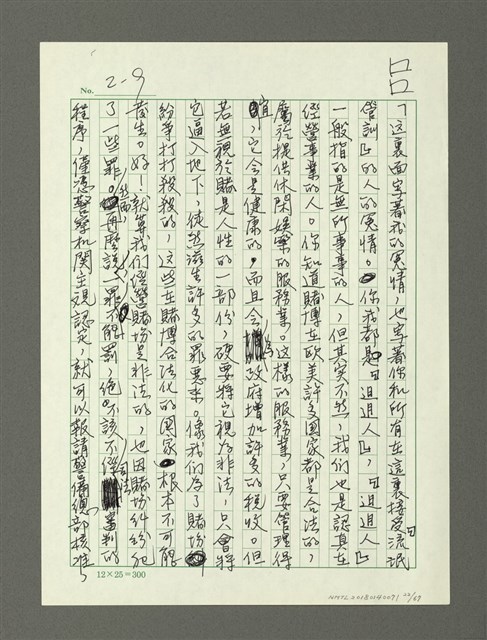 No. 2-9
呂
「这裏面寫著我的冤情,也寫著你和所有在這裏接受『流氓
管訓』的人的冤情。你我都是『迌迌人』,『迌迌人』
一般指的是無所事事的人,但其实不然,我們也是認真在
經營事業的人。你知道賭博在欧美許多國家都是合法的,
屬於提供休閑娛樂的服務業。这樣的服務業,只要管理得
宜,它会是健康的,而且会為政府增加許多的稅收。但
若無視於賭是人性的一部份,硬要将它視為非法,只會将
它逼入地下,使滋生許多的罪惡來。像我們為了賭場
紛爭打打殺殺的,这些在賭博合法化的國家根本不可能
發生。好!就算我們經營賭場是非法的,也因賭場糾紛犯
了一些罪。再怎麼說一罪不能兩罰,絕不該不經司法審判的
程序,僅憑警察机関主观認定,就可以報請警備總部核准,
12×25=300
NMTL20180140091 22/69